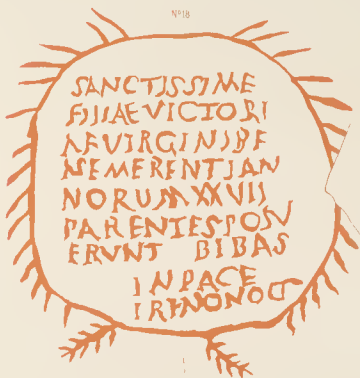 Nº18
SANCTISSIME
FILIAEVICTORI
AEVIRGINIBE
NEMERENTIAN
NORUMXXVII
PARENTESPOSV
ERVNT BIBAS
INPACE